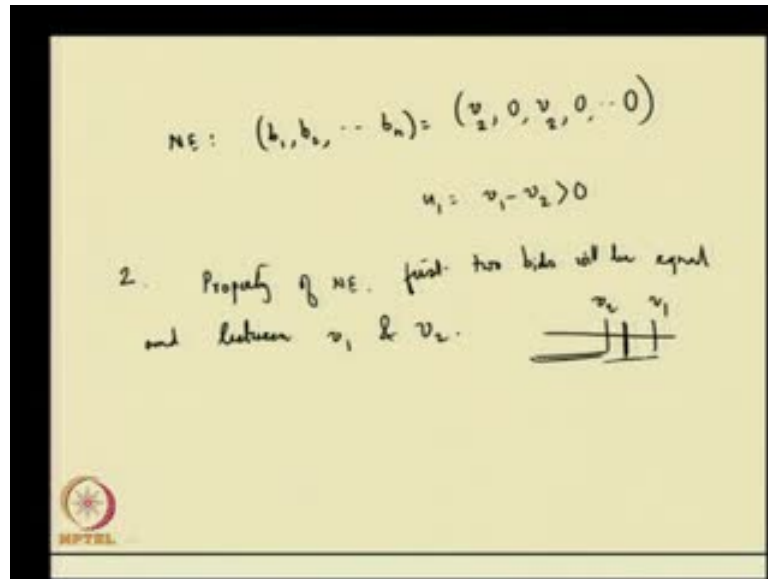 NE: (b₁, b₂, ... b_n) = (v₂, 0, v₂, 0, ... 0)
u₁ = v₁ - v₂ > 0
2. Property of NE. first two bids will be equal
and between v₁ & v₂.
v₂ v₁
NPTEL